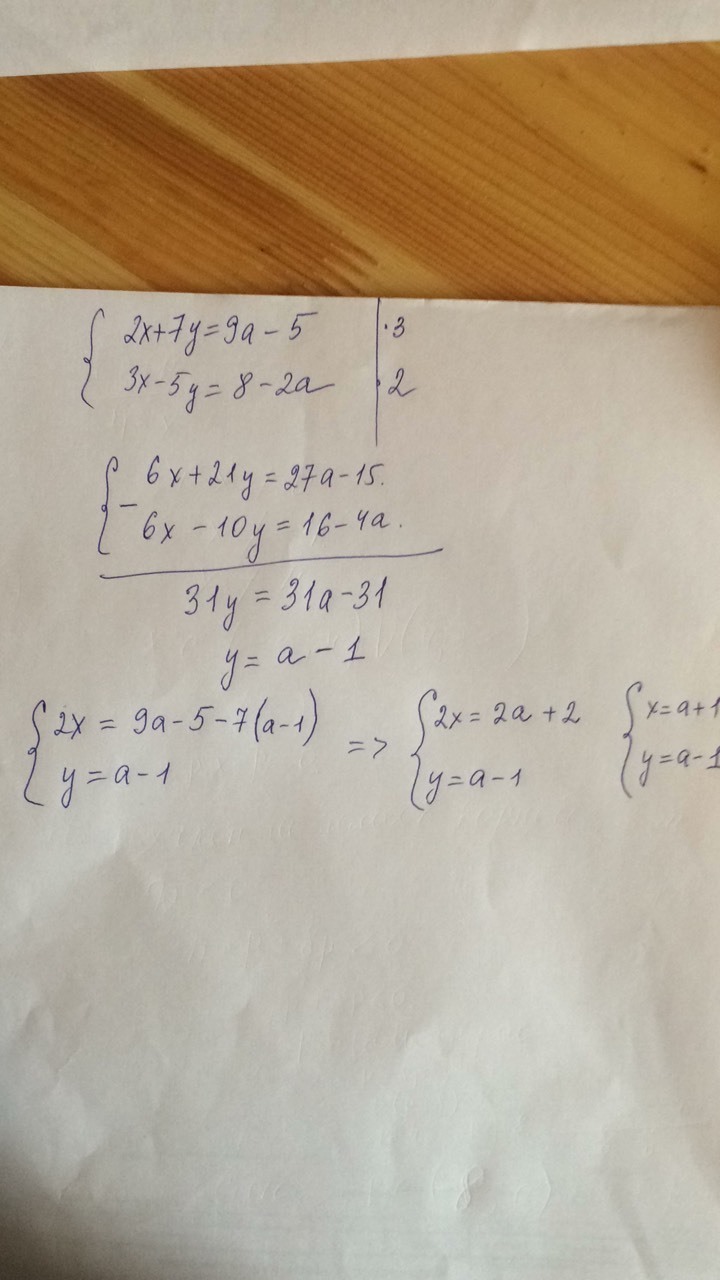 2x+7y=9a-5 | ·3
3x-5y=8-2a | ·2
6x+21y=27a-15.
-
6x-10y=16-4a.
31y=31a-31
y=a-1
{2x=9a-5-7(a-1) => {2x=2a+2 {x=a+1
y=a-1 y=a-1 y=a-1